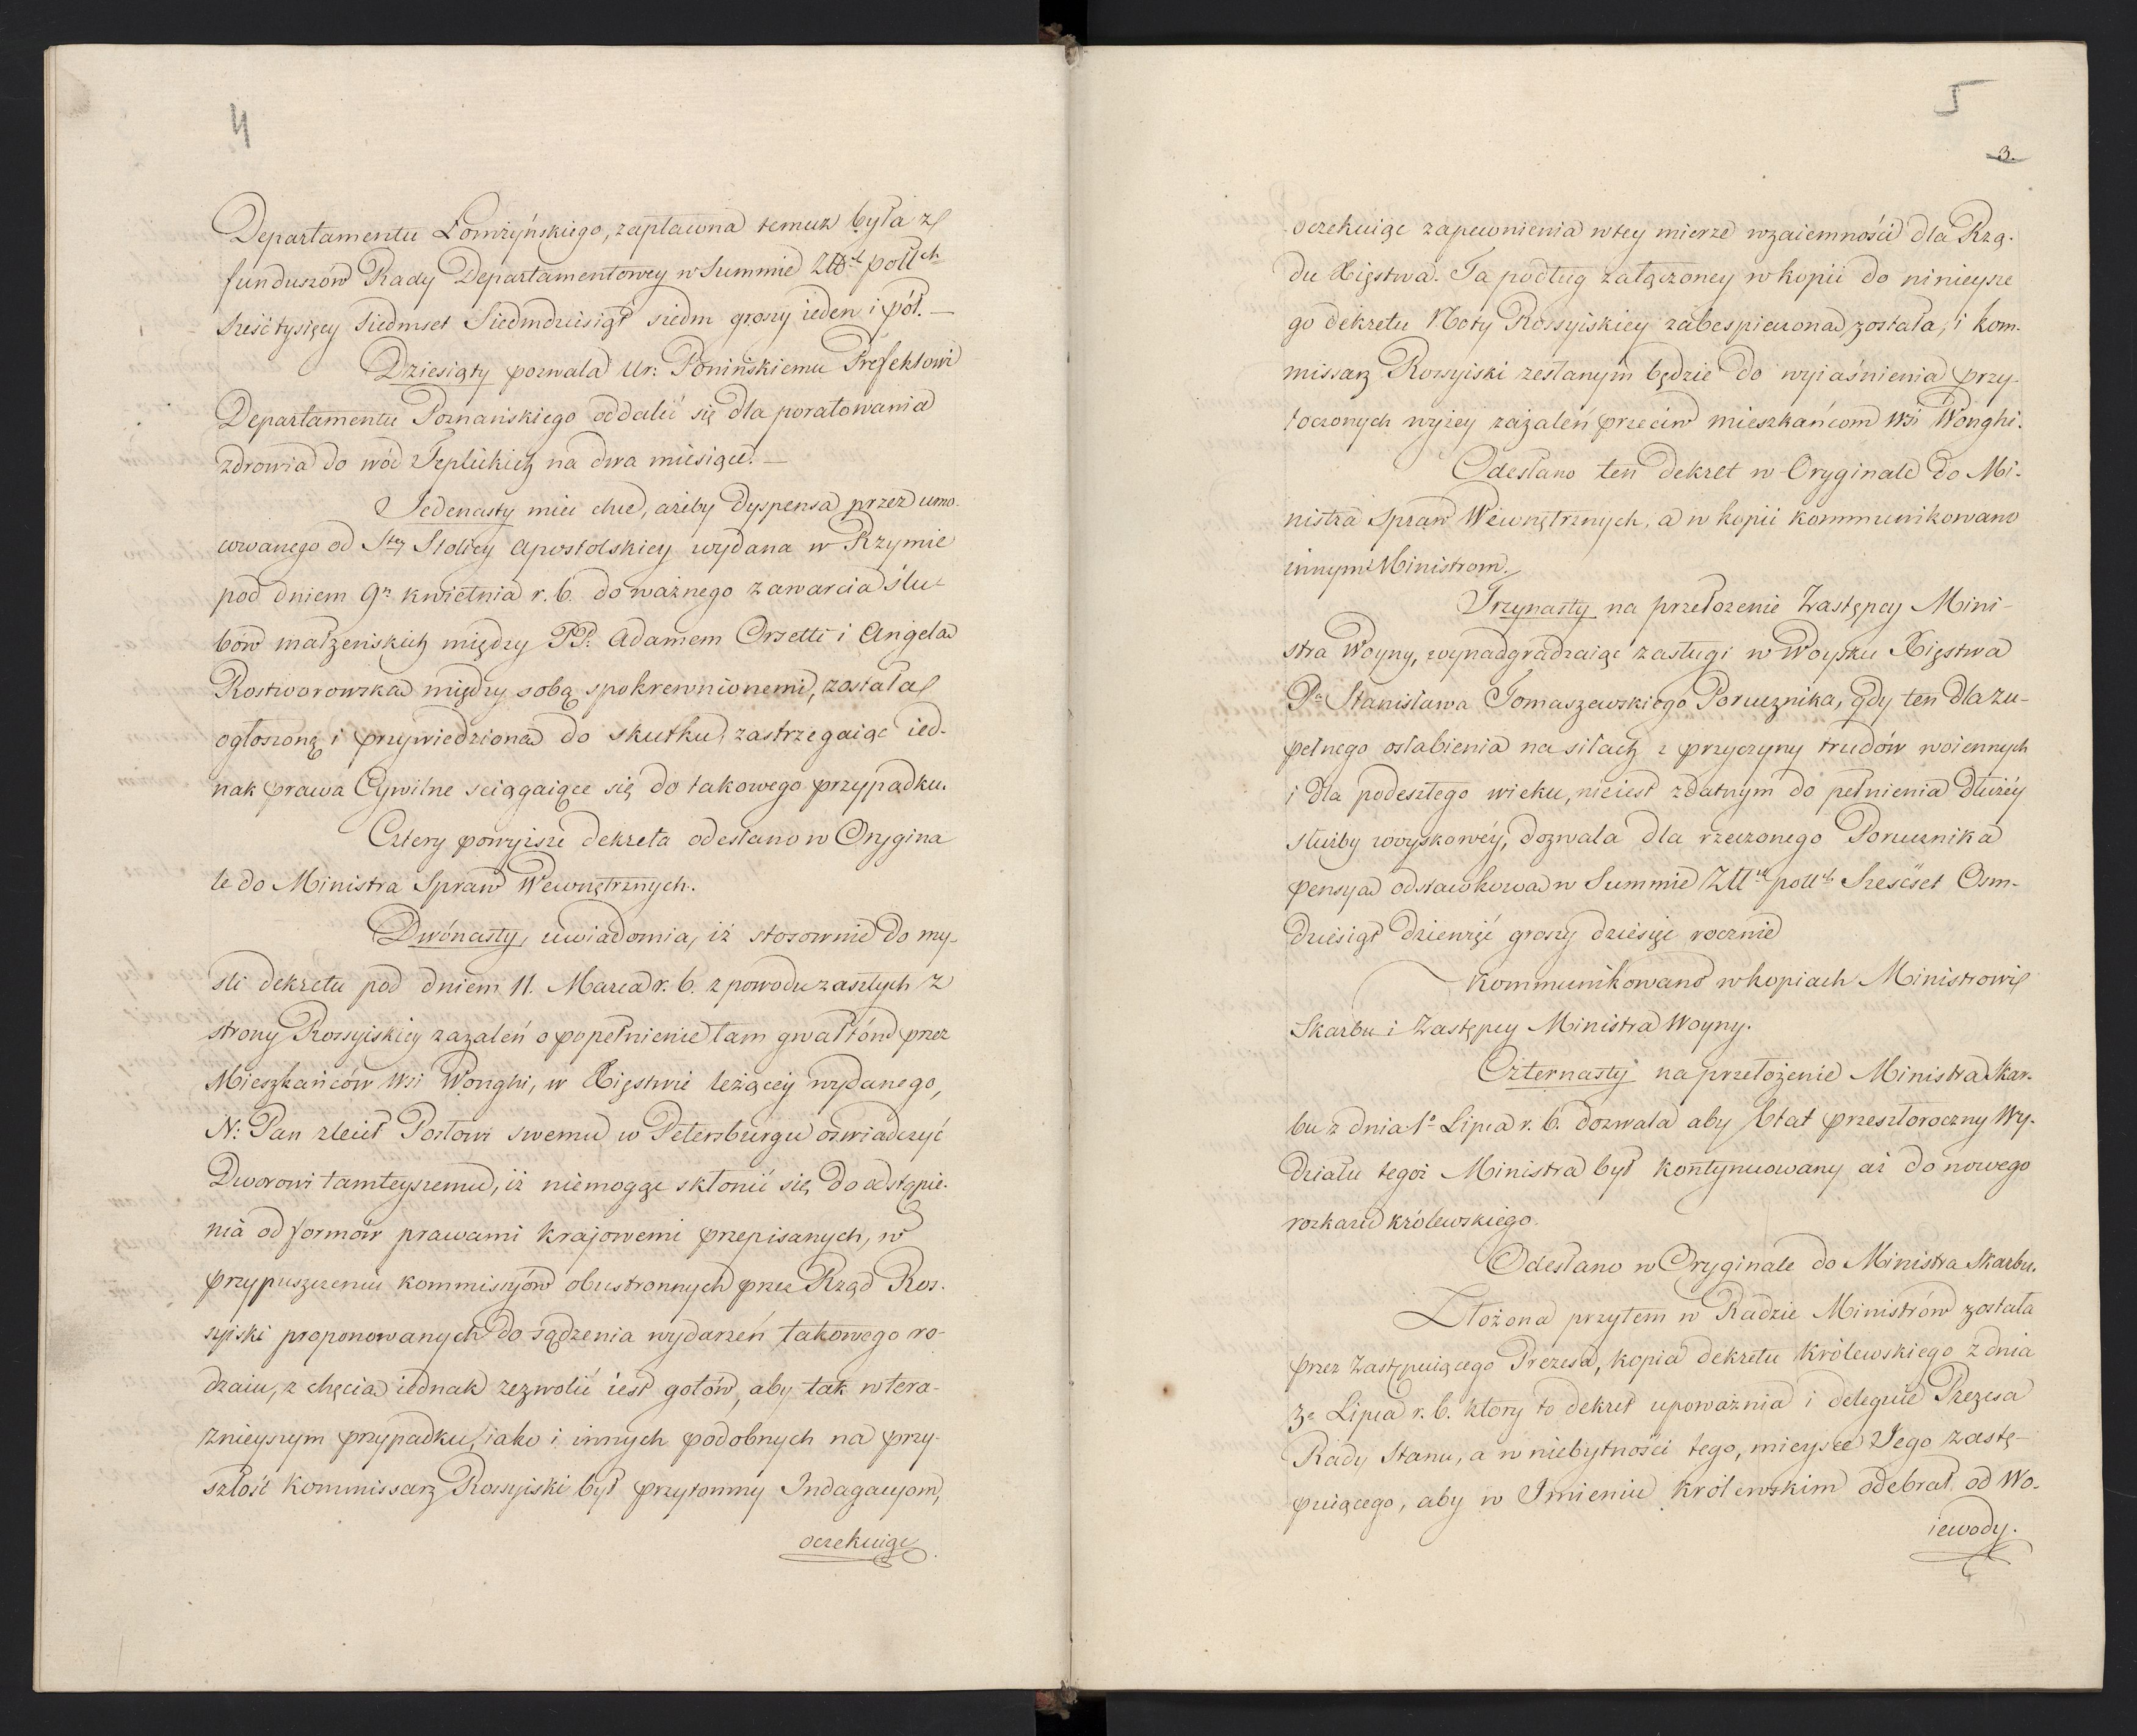 4
Departamentu Łomżyńskiego, zapłacona temuż była z
funduszów Rady Departamentowey w Summie Złt. poll.ch
sześć tysięcy siedmset siedmdziesiąt siedm groszy ieden i pół. —
Dziesiąty pozwala Ur: Ponińskiemu Prefektowi
Departamentu Poznańskiego oddalić się dla poratowania
zdrowia do wód Teplickich na dwa miesiące. —
Jedenasty mieć chce, ażeby Dyspensa przez umo-
cowanego od S.tey Stolicy Apostolskiey wydana w Rzymie
pod dniem 9.° kwietnia r. b. do ważnego zawarcia ślu-
bów małżeńskich między PP: Adamem Orsetti i Angelą
Rostworowską między sobą spokrewnionemi, została
ogłoszoną i przywiedzioną do skutku, zastrzegaiąc ied-
nak prawa Cywilne sciągaiące się do takowego przypadku.
Cztery powyższe dekreta odesłano w Orygina
le do Ministra Spraw Wewnętrznych.
Dwónasty, uwiadomia, iż stosownie do my-
śli dekretu pod dniem 11. Marca r. b. z powodu zaszłych z
strony Rossyiskiey zażaleń o popełnienie tam gwałtów przez
Mieszkańców Wsi Wonghi, w Xięstwie leżącey wydanego,
N: Pan zlecił Posłowi swemu w Petersburgu oświadczyć
Dworowi tamteyszemu, iż niemogąc skłonić się do odstąpie-
nia od formów prawami krajowemi przepisanych, w
przypuszczeniu kommissyów obustronnych przez Rząd Ros-
syiski proponowanych do sądzenia wydarzeń takowego ro-
dzaiu, z chęcią iednak zezwolić iest gotów, aby tak w tera-
źnieyszym przypadku, iako i innych podobnych na przy-
szłość kommissarz Rossyiski był przytomny Indagacyom,
oczekuiąc
5
3.
oczekuiąc zapewnienia w tey mierze wzaiemności dla Rzą-
du Xięstwa. Ta podług załączoney w kopii do ninieysze
go dekretu Noty Rossyiskiey zabespieczoną została, i kom-
missarz Rossyiski zesłanym będzie do wyiaśnienia przy-
toczonych wyżey zażaleń przeciw mieszkańcom Wsi Wonghi.
Odesłano ten dekret w Oryginale do Mi-
nistra Spraw Wewnętrznych, a w kopii kommunikowano
innym Ministrom.
Trzynasty na przełożenie Zastępcy Mini-
stra Woyny, wynadgradzaiąc zasługi w Woysku Xięstwa
P.a Stanisława Tomaszewskiego Porucznika, gdy ten dla zu-
pełnego osłabienia na siłach z przyczyny trudów woiennych
i dla podeszłego wieku, nieiest zdatnym do pełnienia dłużéy
służby woyskowéy, dozwala dla rzeczonego Porucznika
pensyą odstawkową w Summie Złł. poll. Sześćset Osm-
dziesiąt dziewięć groszy dziesięć rocznie
Kommunikowano w kopiach Ministrowi
Skarbu i Zastępcy Ministra Woyny.
Czternasty na przełożenie Ministra Skar-
bu z dnia 1° Lipca r. b. dozwala aby Etat przeszłoroczny Wy-
działu tegoż Ministra był kontynuowany aż do nowego
rozkazu królewskiego.
Odesłano w Oryginale do Ministra Skarbu.
Złożona przytem w Radzie Ministrów została
przez Zastępuiącego Prezesa, kopia dekretu królewskiego z dnia
3° Lipca r. b. który to dekret upoważnia i deleguie Prezesa
Rady Stanu, a w niebytności tego, mieysce Jego zastę-
puiącego, aby w Imieniu królewskim odebrał od Wo-
iewody.